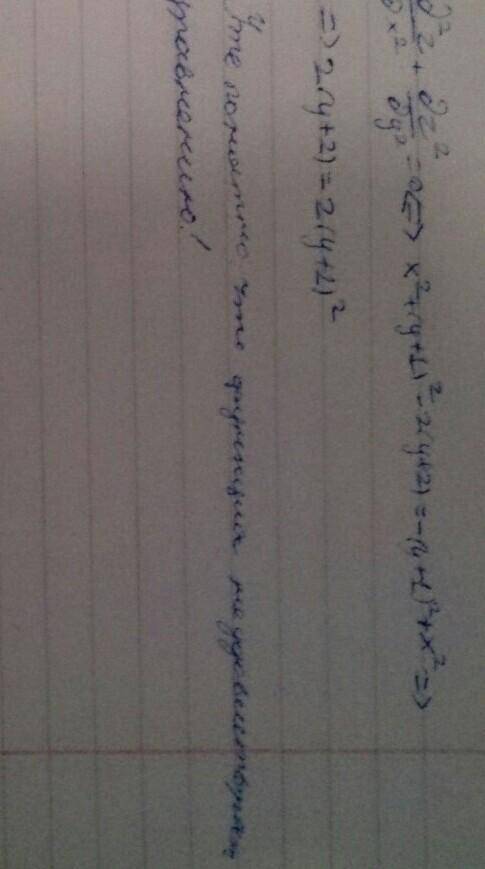 ∂²z/∂x² + ∂z²/∂y² = 0 <=> x²+(y+1)²-2(y+2) = -(y+1)²+x² =>
=> 2(y+2) = 2(y+1)²
Уже понятно, что функция не удовлетворяет
уравнению!